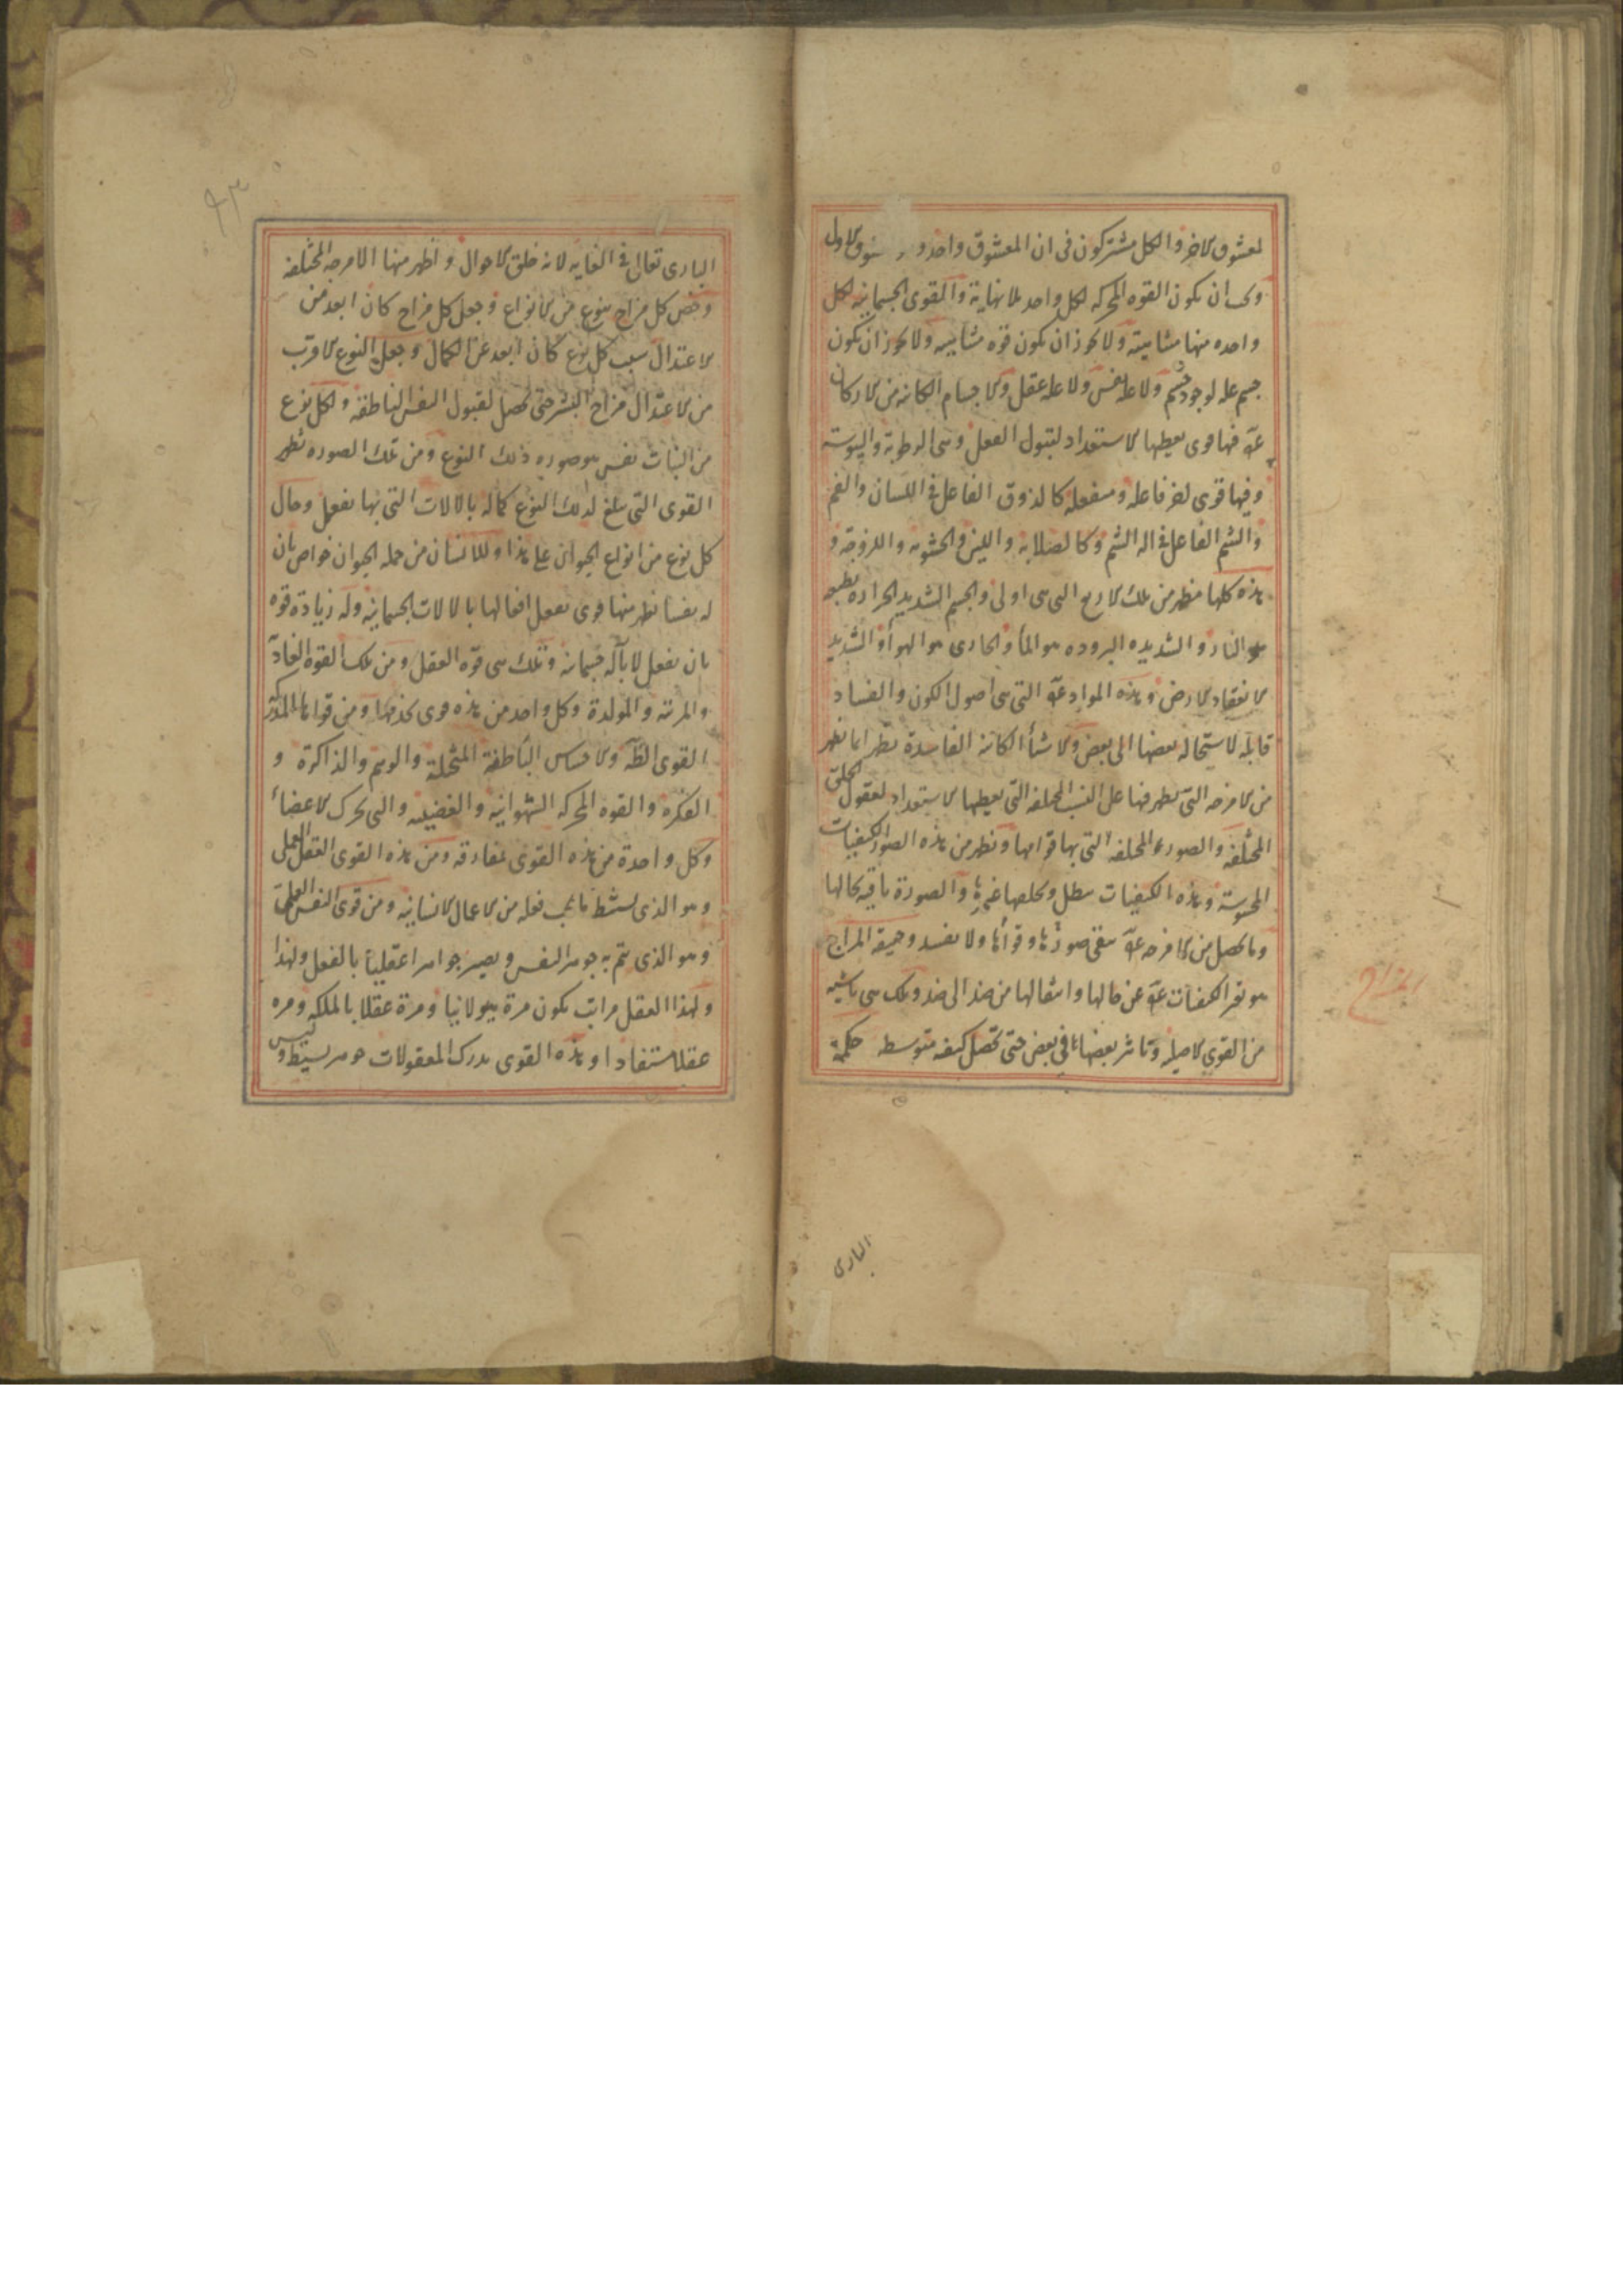 لمعشوق الاخر والكل مشتركون فى ان المعشوق واحد و الاول
وىحب ان ىكون القوه المحركه لكل واحد بلا نهاية والقوى الجسمانيه لكل
واحده منها متناهيته ولا ىحوز ان ىكون قوه متناهيه ولا ىحوز ان ىكون
جسم عله لوجود جسم ولا عله لنفس ولا عله عقل والاجسام الكائنه من الاركان
فيها قوى ىعطيها الاستعداد لقبول الفعل وهى الرطوبة واليبوسة
وفيها قوى اخر فاعله ومنفعله كالذوق الفاعل فى اللسان والفم
والشم الفاعل فى اله الشم وكالصلابه واللين والخشونه واللزوجه و
هذه كلها تظهر من تلك الاربع التى هى اولى والجسم الشديد الحراره بطبعه
هو النار والشديده البروده هو الماء والجارى هو الهواء والشديد
الانعقاد الارض وهذه المواد التى هى اصول الكون والفساد
قابله لاستحاله بعضها الى بعض والاشياء الكائنه الفاسدة تظهر انما تظهر
من الامزجه التى تظهر فيها على النسب المختلفه التى يعطيها الاستعداد لقبول الخلق
المختلفه والصور المختلفه التى بها قوامها وتظهر من هذه الصور الكيفيات
المحسوسة وهذه الكيفيات تبطل وىخلفها غيرها والصورة باقيه بحالها
وما ىحصل من الامزجه تبقى صورتها وقواها ولا تفسد وحقيقه المزاج
هو تغير الكيفيات عن حالها وانتقالها من ضد الى ضد وتلك هى ناشيه
من القوى الاصليه وتاثر بعضها فى بعض حتى تحصل كيفيه متوسطه حكمة
المزاج
البارى
البارى تعالى فى الغايه لانه خلق الاحوال واظهر منها الامزجه المختلفه
وخص كل مزاج بنوع من الانواع وجعل كل مزاج كان ابعد من
الاعتدال سبب كل نوع كان ابعد عن الكمال وجعل النوع الاقرب
من الاعتدال مزاج البشر حتى ىحصل لقبول النفس الناطقه ولكل نوع
من النبات نفس هو صوره ذلك النوع ومن تلك الصوره تظهر
القوى التى تبلغ لذلك النوع كماله بالالات التى بها ىفعل وحال
كل نوع من انواع الحيوان على هذا وللانسان من جمله الحيوان خواص بان
له نفسا تظهر منها قوى تفعل افعالها بالالات الجسمانيه وله زيادة قوه
بان ىفعل لا بآله جسمانيه وتلك هى قوة العقل ومن تلك القوه الغاذية
والمربيه والمولدة وكل واحد من هذه قوى ىخدمها ومن قواها المدركة
القوى الظاهرة والاحساس الباطنة المتخيلة والوهم والذاكرة و
الفكره والقوه المحركه الشهوانيه والغضبيه والتى تحرك الاعضاء
وكل واحدة من هذه القوى مفارقه ومن هذه القوى العقل العملى
وهو الذى ىستنبط ما ىجب فعله من الاعمال الانسانيه ومن قوى النفس العلمى
وهو الذى يتم به جوهر النفس ويصير جوهرا عقليا بالفعل ولهذا
ولهذا العقل مراتب ىكون مرة هيولانيا ومرة عقلا بالملكه ومره
عقلا مستفادا وهذه القوى تدرك المعقولات جوهر بسيط وليس